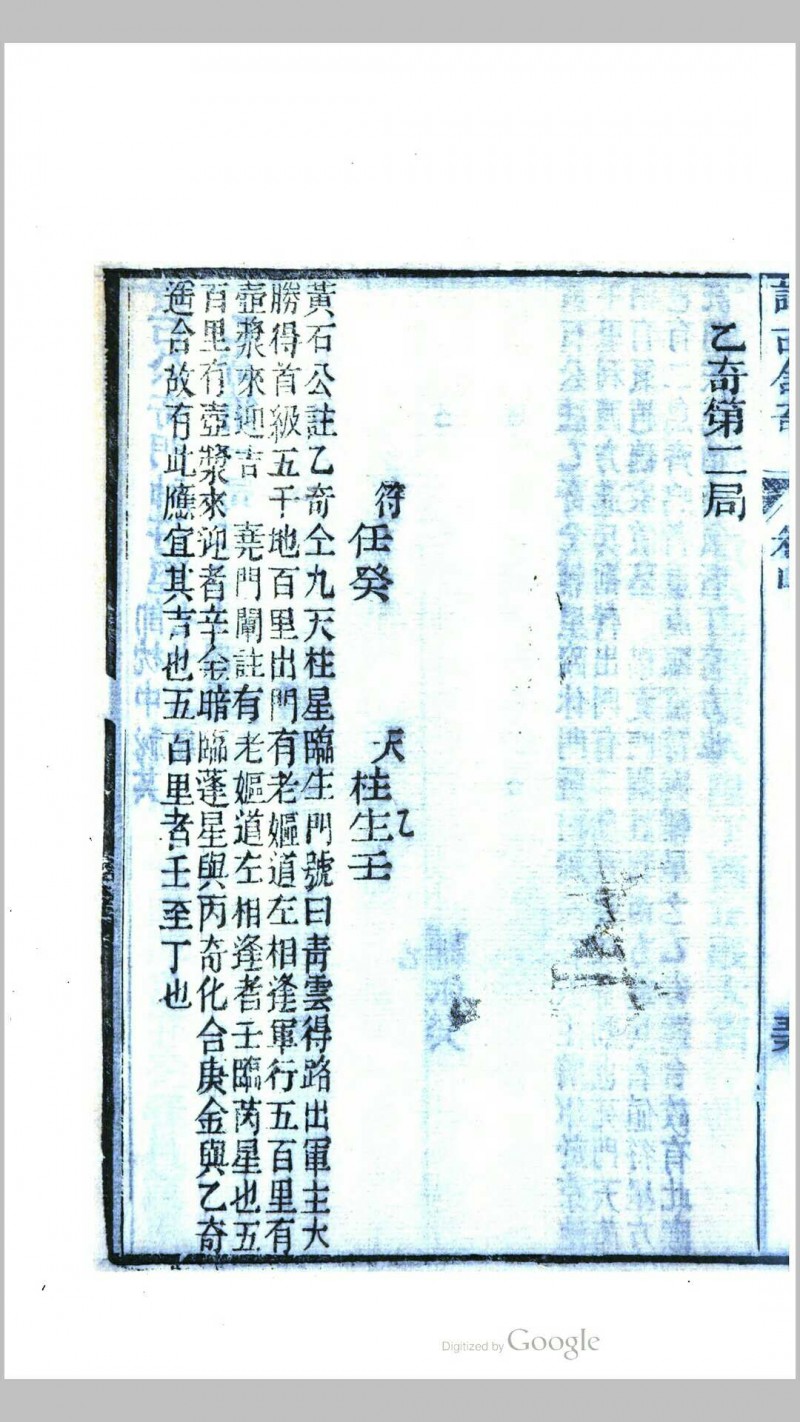 乙奇第二局
符
任癸
天
柱生壬
乙
黃石公註乙奇仝九天柱星臨生門號曰青雲得路出軍主大
勝得首級五千地百里出門有老嫗道左相逢軍行五百里有
壺漿來迎吉　堯門闡註有老嫗道左相逢者壬臨芮星也五
百里有壺漿來迎者辛金暗臨蓬星與丙奇化合庚金與乙奇
遁合故有此應宜其吉也五百里者壬至丁也
Digitized by Google